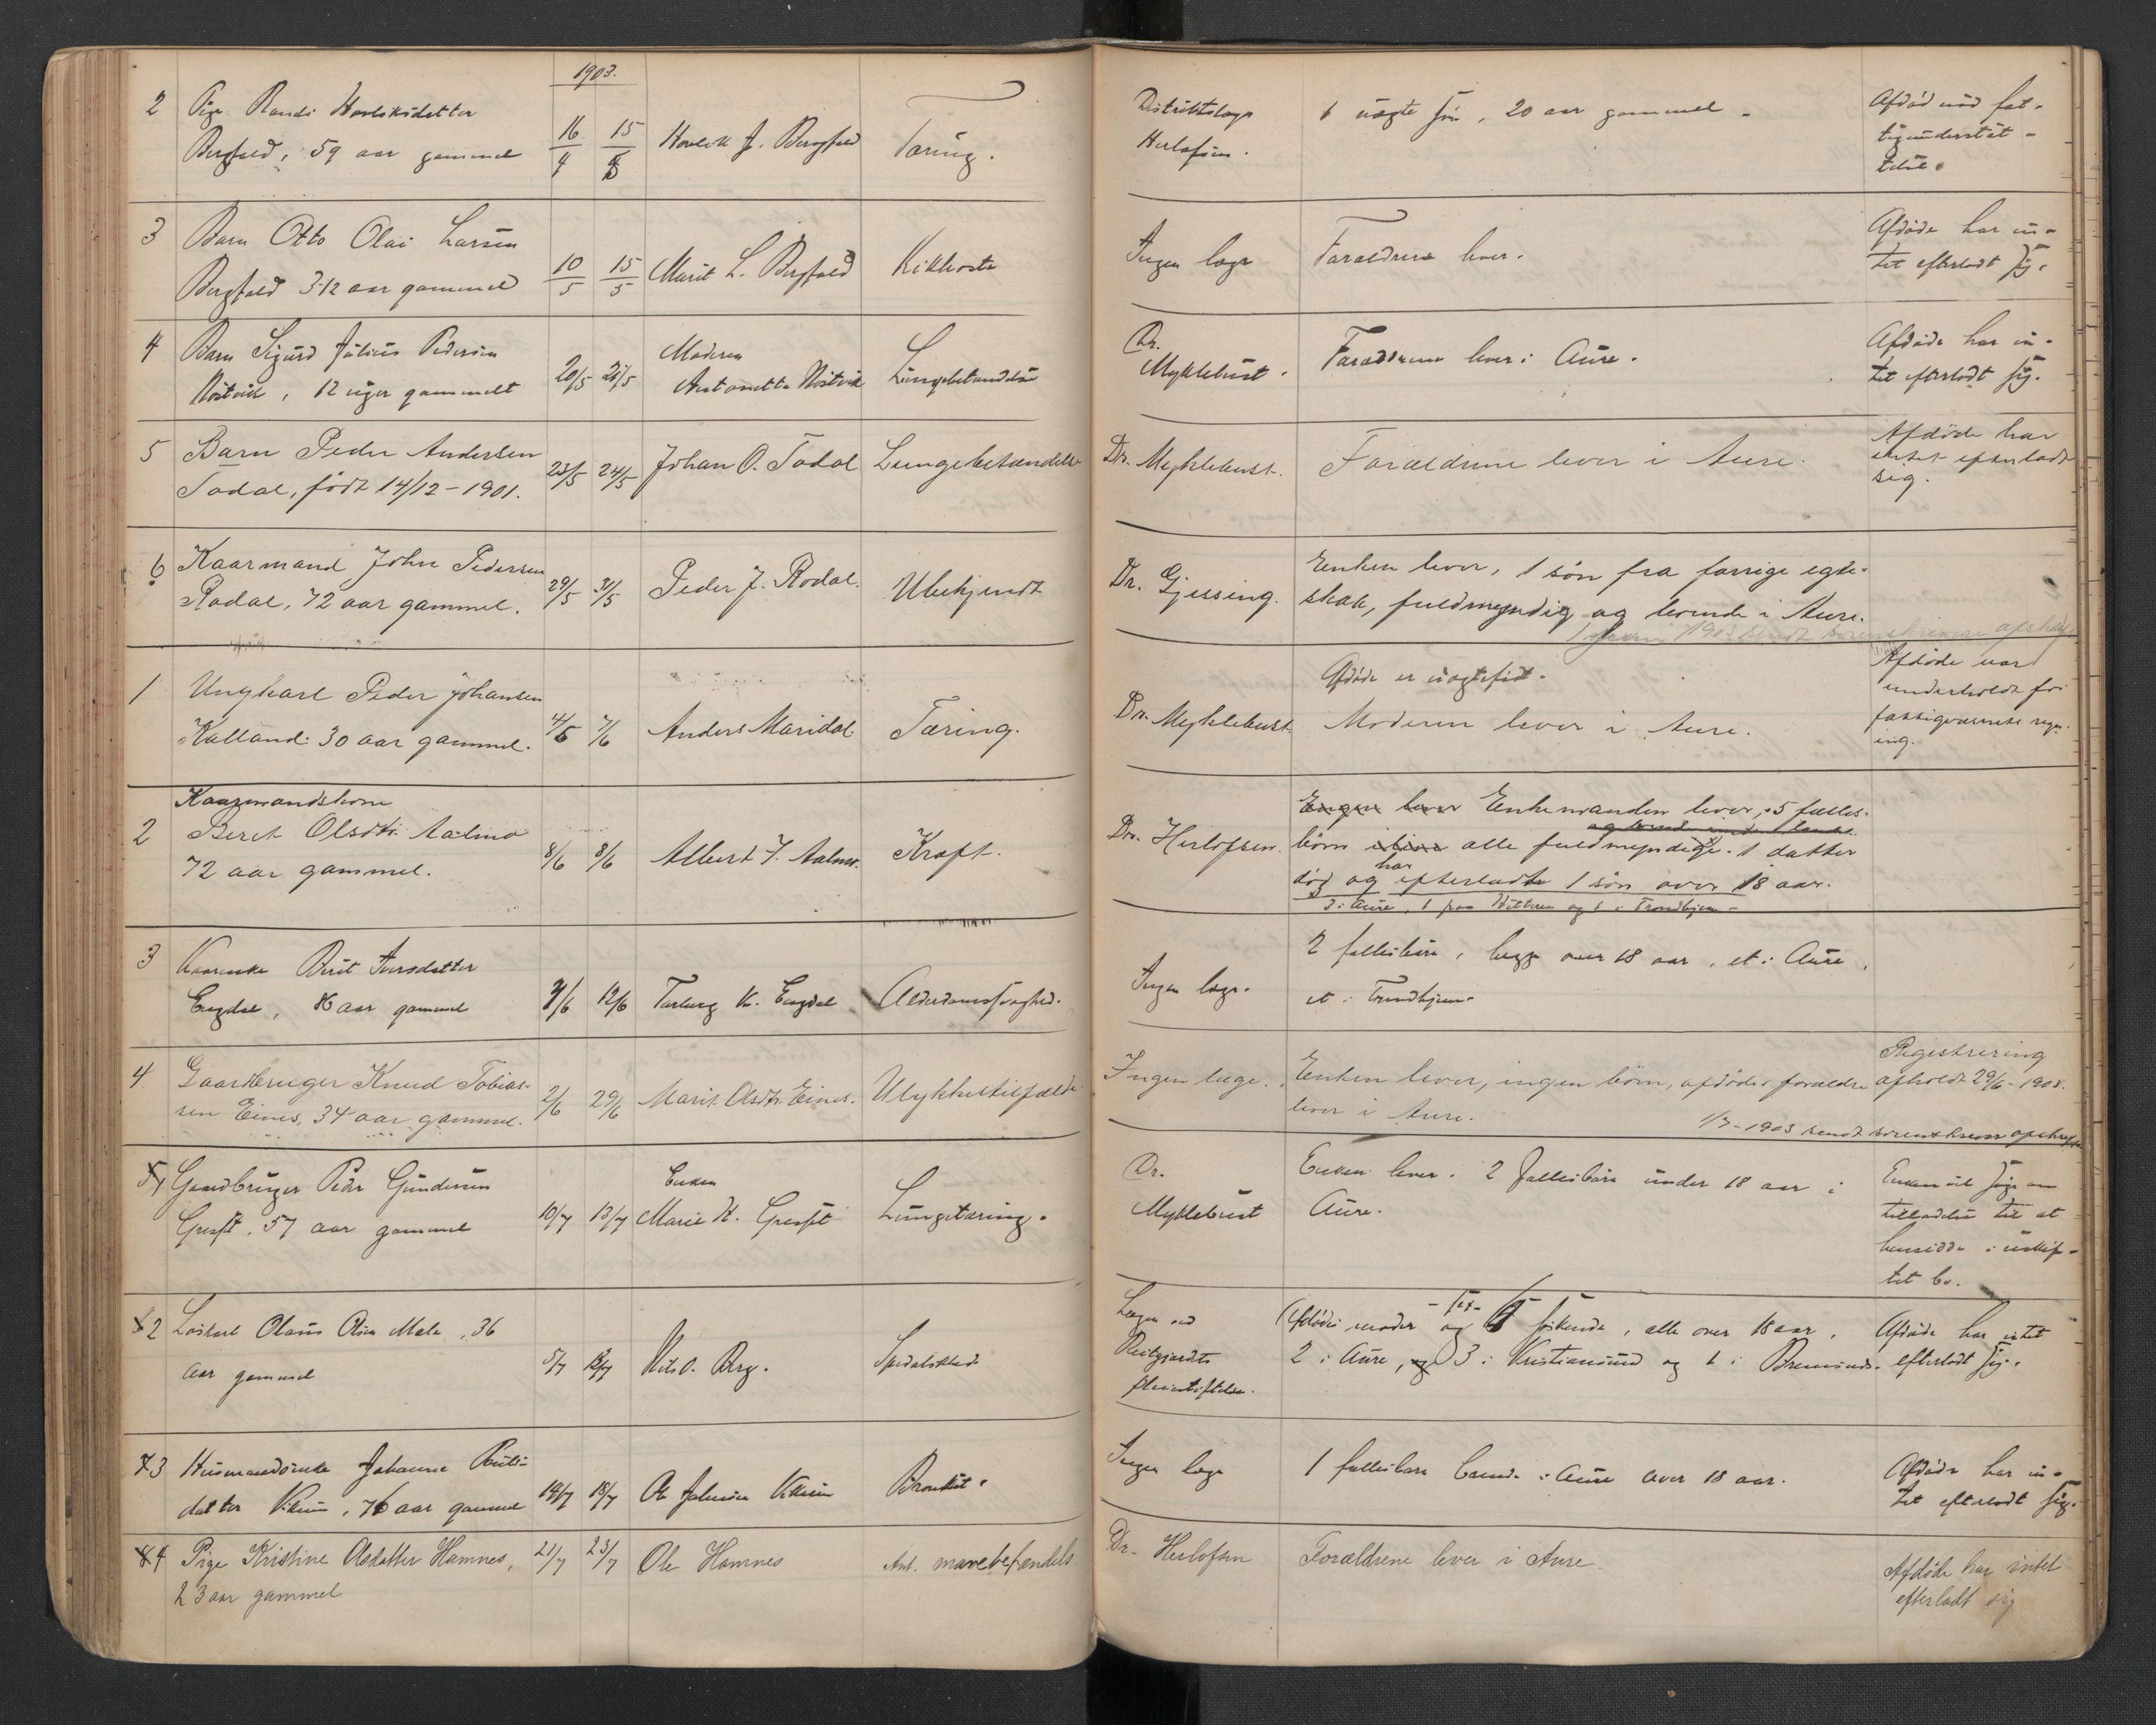 1903.
2 Pige Randi Hovlsiksdatter
Bergfald, 59 aar gammel
16/4 15/5
Hovlik J. Bergfald
Tæring.
Distriktslæge
Herlofsen.
1 uægte søn, 20 aar gammel.
Afdød nød fat-
tigunderstøt-
telse.
3 Barn Otto Olai Larsen
Bergfald 3 1/2 aar gammel
10/5 15/5
Marit L. Bergfald
Kikhoste
Ingen læge
Forældrene lever.
Afdøde har in-
tet efterladt sig.
4 Barn Sigurd Julius Pedersen
Nostvik, 12 uger gammelt
20/5 25/5
Moderen
Antonette Nostvik
Lungebetændelse
Dr.
Myklebust.
Forældrene lever i Aure.
Afdøde har in-
tet efterladt sig.
5 Barn Peder Andersen
Todal, født 14/12-1901.
23/5 24/5
Johan O. Todal
Lungebetændelse
Dr. Myklebust.
Forældrene lever i Aure.
Afdøde har
intet efterladt
sig.
6 Kaarmand John Pedersen
Rodal, 72 aar gammel.
29/5 31/5
Peder J. Rodal.
Ubekjendt
Dr. Gjessing.
Enken lever, 1 søn fra forrige egte-
skab, fuldmyndig og boende i Aure.
1903 sendt sorenskriver
1 Ungkarl Peder Johansen
Kalland 30 aar gammel.
4/6 7/6
Anders Maridal.
Tæring.
Dr. Myklebust.
Afdøde er uægtefødt.
Moderen lever i Aure.
Afdøde var
underholdt for
fattigvæsnets regn-
ing.
Kaarmandskone
2 Beret Olsdtr. Aalmo
72 aar gammel.
8/6 8/6
Albert J. Aalmo.
Kræft.
Dr. Herlofsen.
Engen lever Enkemanden lever, 5 fælles-
børn i live alle fuldmyndige. 1 datter
død og har efterladt 1 søn over 18 aar.
3 i Aure, 1 paa Hitteren og 1 i Trondhjem
3 Kaarenke Berit Iversdatter
Engdal, 86 aar gammel
9/6 12/6
Torberg K. Engdal
Alderdomssvaghed.
Ingen læge.
2 fællesbørn, begge over 18 aar, et i Aure,
et i Trondhjem.
4. Gaardbruger Knud Tobias-
sen Eines, 34 aar gammel.
2/6 29/6
Marit Olsdtr. Eines.
Ulykkestilfælde
Ingen læge.
Enken lever, ingen børn, afdødes forældre
lever i Aure.
Registrering
afholdt 29/6-1903.
1/7-1903 sendt sorenskriver opskrift
5 1 Gaardbruger Peder Gundersen
Grefst. 57 aar gammel
10/7 13/7
Enken
Marie K. Grefst
Lungetæring.
Dr.
Myklebust
Enken lever. 2 fællesbørn under 18 aar i
Aure.
Enken vil søge om
tilladelse til at
hensidde i uskif-
tet bo.
2 Løskarl Olaus Olsen Mæle, 36
aar gammel
5/7 13/7
Nils O. Berg.
Spedalskhed
Lægen ved
Reitgjærdets
pleiestiftelse.
Afdødes moder og - sex - 6 søskende, alle over 18 aar,
2 i Aure, og 3 i Kristiansund og 1 i Bremsnes.
Afdøde har intet
efterladt sig.
7 3 Husmandsenke Johanna
datter Vikum, 76 aar gammel
14/7 18/7
Ole Johnsen Vikum
Bronkit.
Ingen læge
1 fællesbarn boende i Aure over 18 aar.
Afdøde har in-
tet efterladt sig.
8 4 Pige Kristine Olsdatter Hamnes,
23 aar gammel
21/7 23/7
Ole Hamnes
Ant. mavebetændels.
Dr. Herlofsen
Forældrene lever i Aure.
Afdøde har intet
efterladt sig